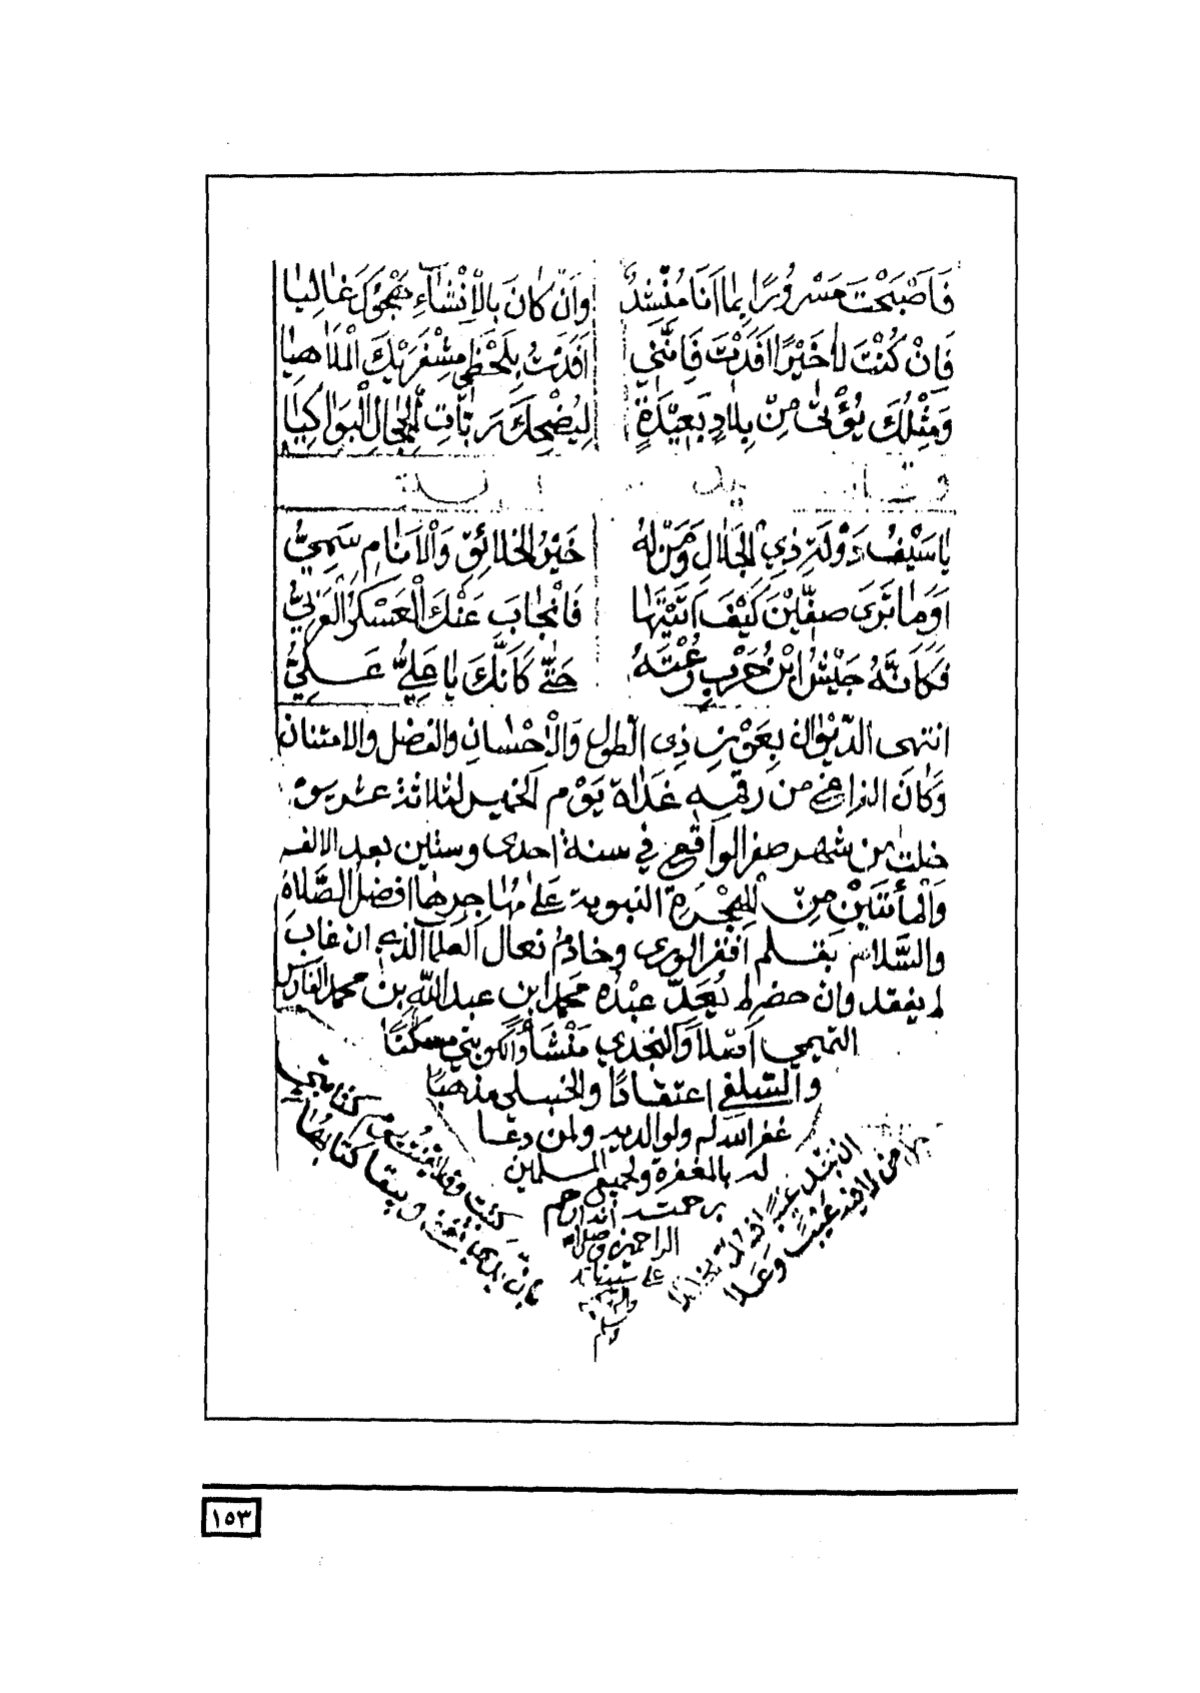 فَاَصْبَحْتَ مَسْرُورًا بِمَا اَنَا مُنْشِدٌ وَاَنْ كَانَ بِالْاِنْشَآءِ هَجْوُكَ غَالِيَا
فَاِنْ كُنْتَ لَا خَيْرًا اَفَدْتَ فَاِنَّنِي اَفَدْتُ بِلَحْظِي مِشْفَرَيْكَ الْمَلَاهِيَا
وَمِثْلُكَ يُؤْتٰى مِنْ بِلَادٍ بَعِيْدَةٍ لِيُضْحِكَ رَبَّاتِ الْحِجَالِ الْبَوَاكِيَا
يَا سَيْفُ دَوْلَةِ ذِي الْجَلَالِ وَمَنْ لَهُ خَيْرُ الْخَلَائِقِ وَالْاَنَامِ سَمِيُّ
اَوَمَا تَرَى صِفِّيْنَ كَيْفَ اَتَيْتَهَا فَانْجَابَ عَنْكَ الْعَسْكَرُ الْغَرْبِيُّ
فَكَاَنَّهُ جَيْشُ ابْنِ حَرْبٍ رُعْتَهُ حَتّٰى كَاَنَّكَ يَا عَلِيُّ عَلِيُّ
انتهى الديوان بعون ذي الطول والاحسان والفضل والامتنان
وكان الفراغ من رقمه غداة يوم الخميس لثلاثة عشر يوم
خلت من شهر صفر الواقع في سنة احدى وستين بعد الالف
والمأتين من الهجرة النبوية على مهاجرها افضل الصلاة
والسلام بقلم افقر الورى وخادم نعال العلما الذي ان غاب
لم يفقد وان حضر لم يُعَدّ عبده محمد ابن عبدالله بن محمد الفارس
التميمي اصلا والنجدي منشأ والكويتي مسكنا
والسلفي اعتقادًا والحنبلي مذهبًا
غفر الله له ولوالديه ولمن دعا
له بالمغفرة ولجميع المسلمين
برحمته انه ارحم
الراحمين وصلى الله
على سيدنا
وسلم
كتبت وقد ايقنت يوم كتابتي
بان يدي تفنى ويبقا كتابها
ان تجد عيبًا فسد الخللا
جل من لا فيه عيب وعلا
١٥٣